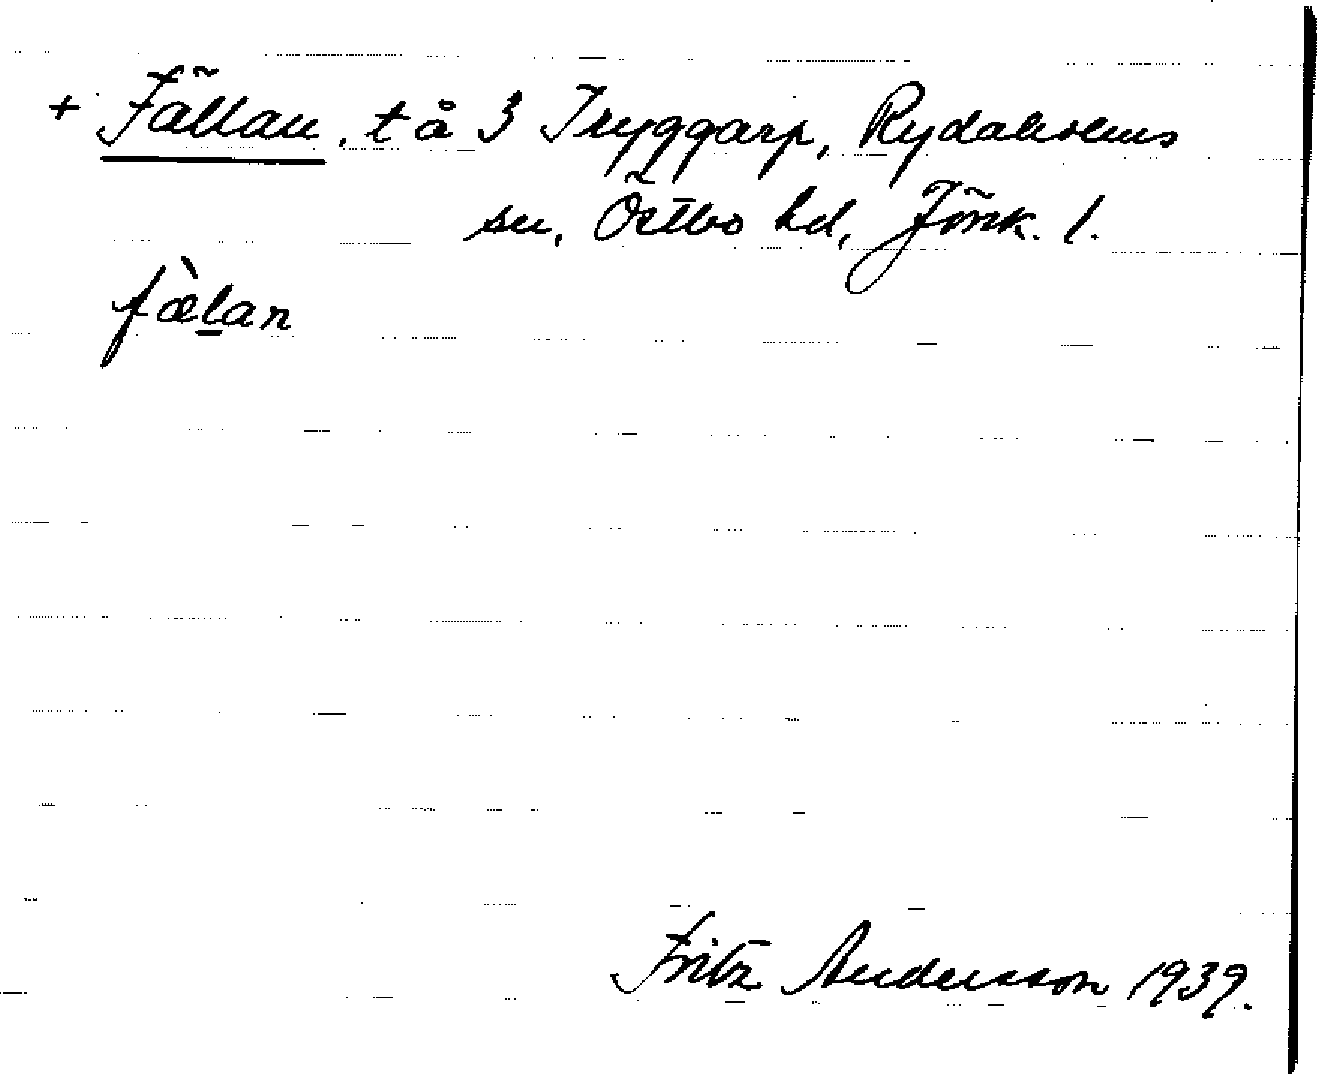 + Fällan, t å 3 Tryggarp, Rydaholms
sn, Östbo hd, Jönk. l.
fæ̀l̲an
Fritz Andersson 1939.